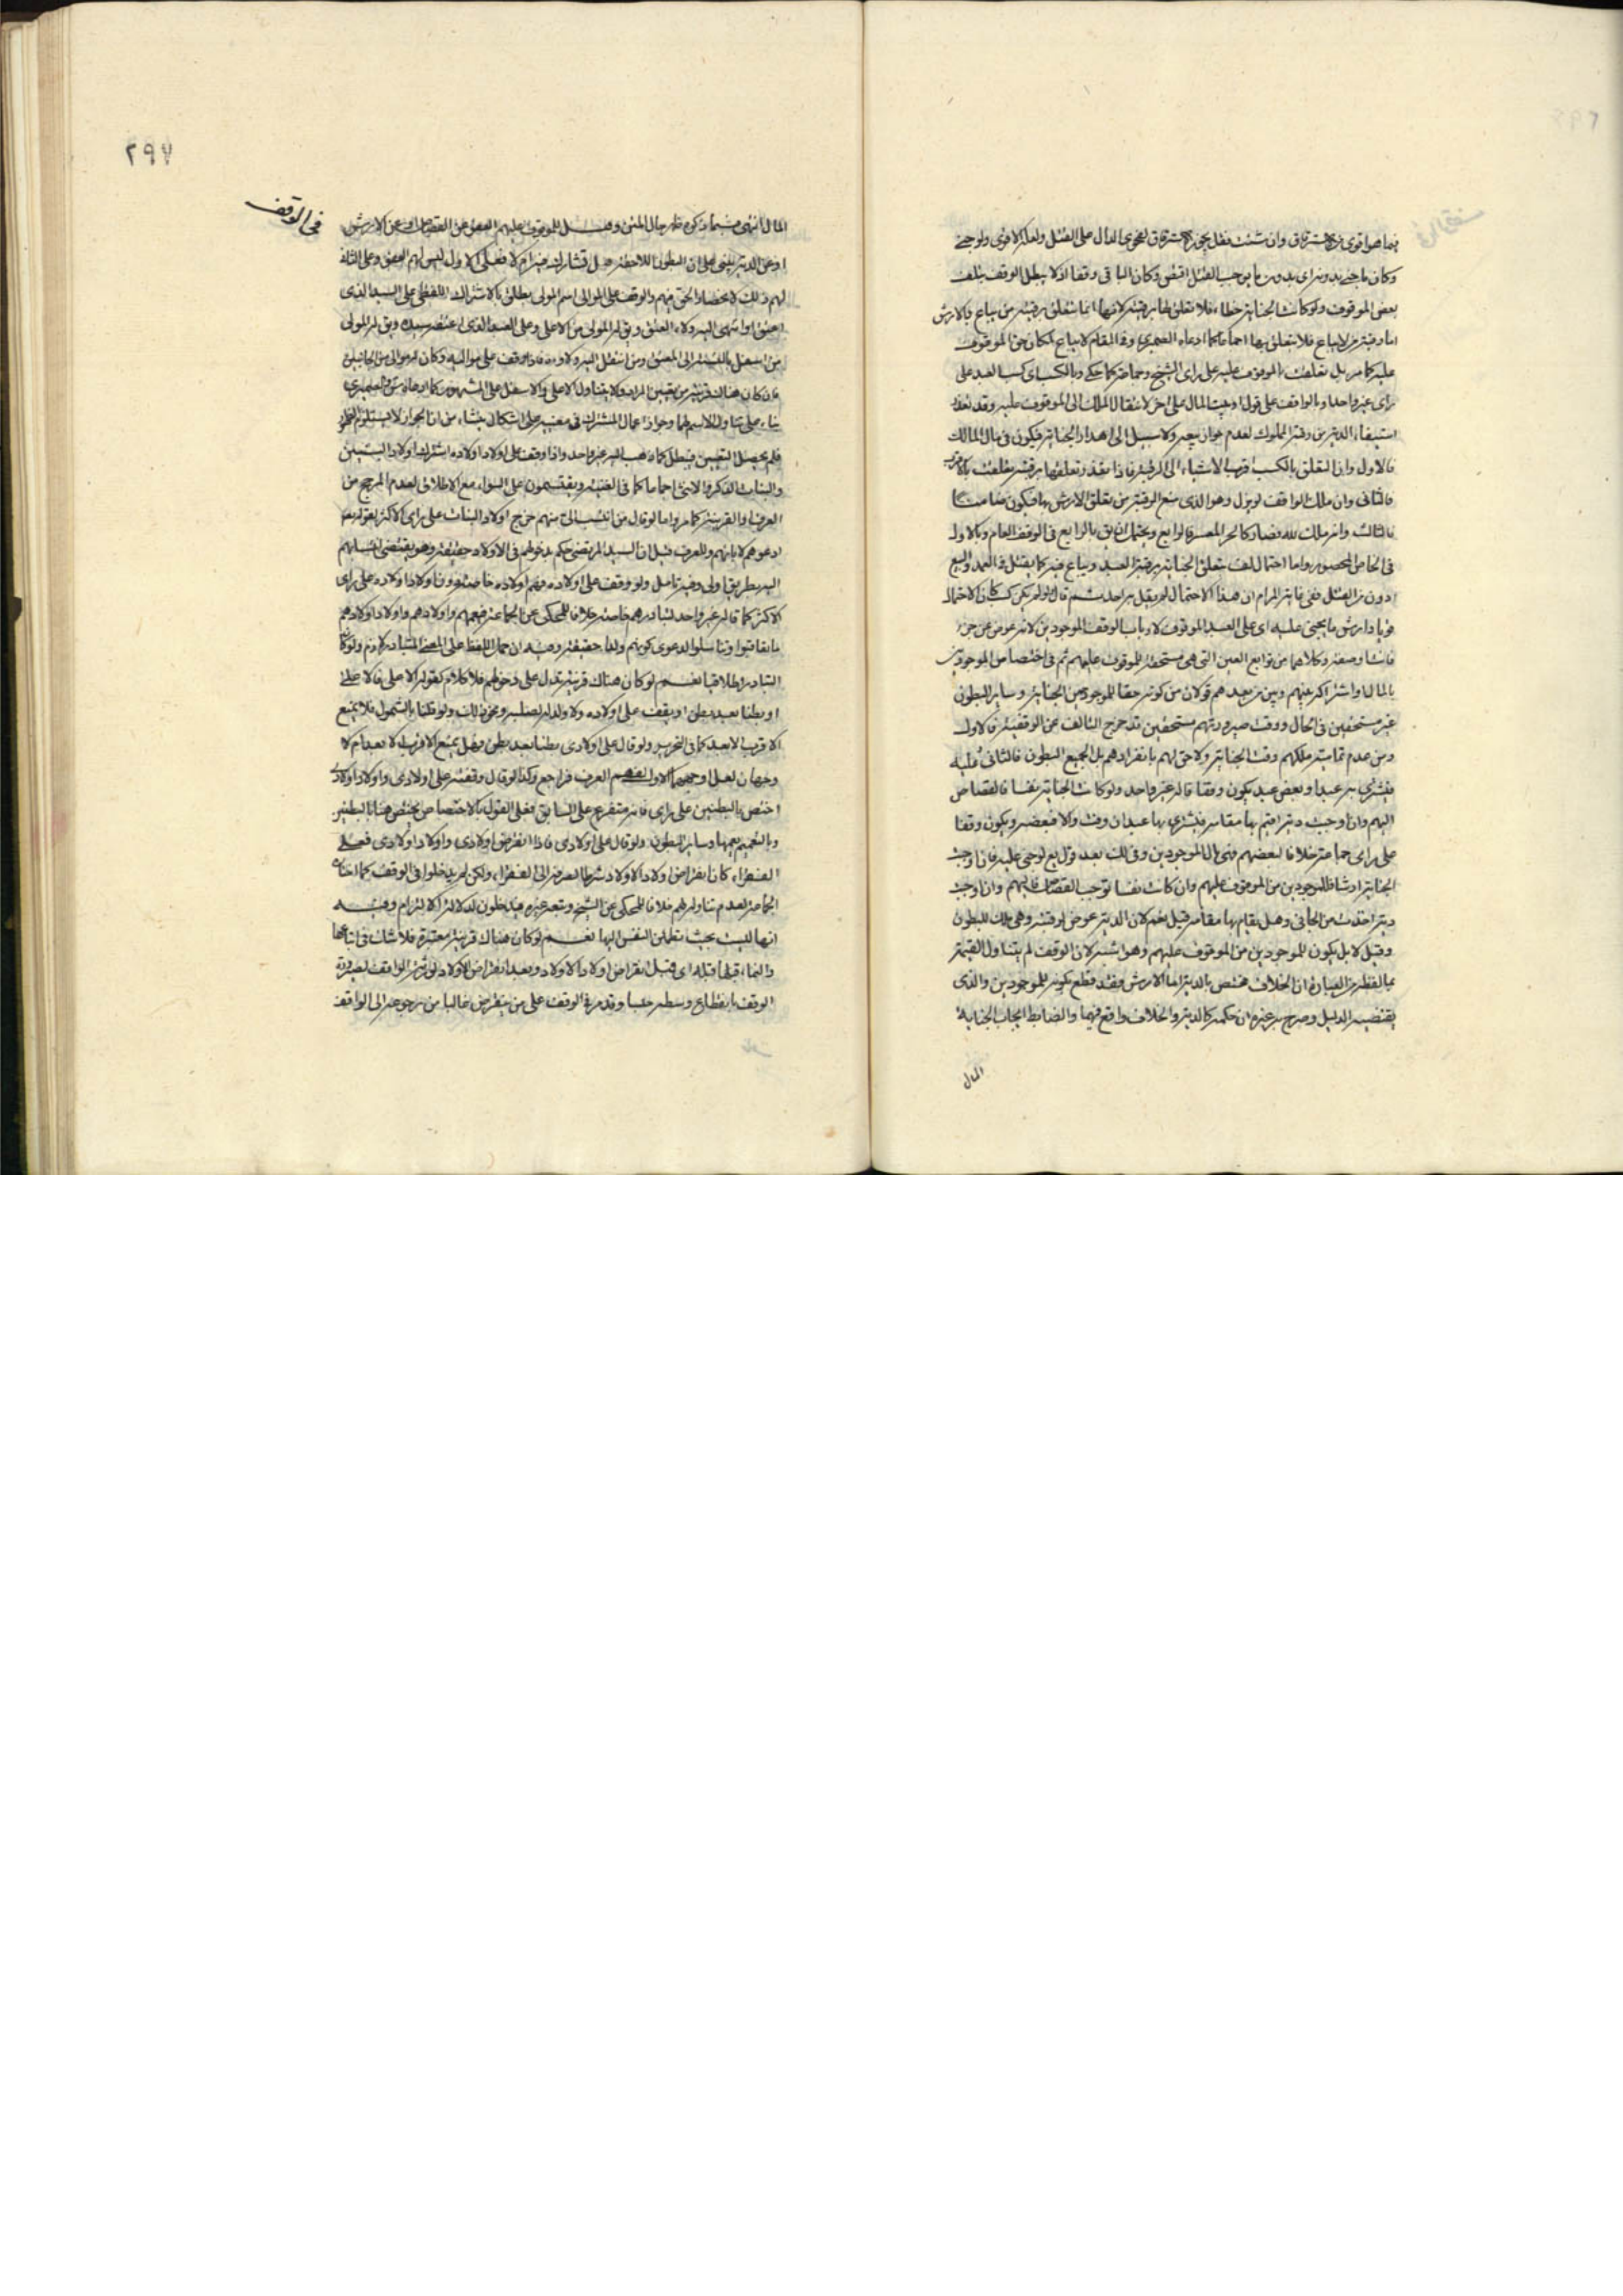 فيما هو اقوى من الاسترقاق وان شئت فقل يجوز الاسترقاق لفحوى الدال على القتل ولعله الاقوى ولو جنى
وكان ما جنى به دونه اى بدون ما يوجب القتل اقتص وكان الباقى وقفا اذ لا يبطل الوقف بتلف
بعض الموقوف ولو كانت الجناية خطاء فلا تعلق لها برقبته لانها انما تتعلق برقبة من يباع بالارش
اما رقبة من لا يباع فلا يتعلق بها اجماعا كما ادعاه الصيمرى وفى المقام لا يباع لمكان حق الموقوف
عليه كما مر بل تعلقت بالموقوف عليه على راى الشيخ وجماعة كما حكى وبالكسب اى كسب العبد على
راى غير واحد او بالواقف على قول او بيت المال على اخر لانتقال الملك الى الموقوف عليه وقد تعذر
استيفاء الدية من رقبة المملوك لعدم جواز بيعه ولا سبيل الى اهدار الجناية فيكون فى مال المالك
فالاول وان التعلق بالكسب اقرب الاشياء الى الرقبة فاذا تعذر تعلقها برقبته تعلقت بالاقرب
فالثانى وان ملك الواقف لم يزل وهو الذى منع الرقبة من تعلق الارش بها فيكون ضامنا
فالثالث وانه ملك لله فصار كالحر المعسر فالرابع ويحتمل ان يق بالرابع فى الوقف العام وبالاول
فى الخاص المحصور واما احتمال لف تعلق الجناية برقبة العبد ويباع فيه كما يقتل فى العمد والبيع
ادون من القتل ففى غاية المرام ان هذا الاحتمال لم يقل به احد ثم قال ولو لم يكن كسب كان الاحتمال
قويا وارش ما يجنى عليه اى على العبد الموقوف لارباب الوقف الموجودين لانه عوض عن جزء
فائت او صفته وكلاهما من توابع العين التى هى مستحقة للموقوف عليهم ثم فى اختصاص الموجودين
بالمال او اشتراكه بينهم وبين من بعدهم قولان من كونه حقا للموجودين الجناية وساير البطون
غير مستحقين فى الحال ووقت صيرورتهم مستحقين قد خرج التالف عن الوقفية فالاول
ومن عدم تمامية ملكهم وقت الجناية ولا حق لهم بانفرادهم بل لجميع البطون فالثانى وعليه
فيشترى به عبدا وبعض عبد يكون وقفا قاله غير واحد ولو كانت الجناية نفسا فالقصاص
اليهم وان اوجبت دية اقيم بها مقامه فيشترى بها عبد ان وفت والا فبعضه ويكون وقفا
على راى جماعة خلافا لبعضهم فهى للموجودين
الجناية ارشا فللموجودين من الموقوف عليهم وان كانت نفسا توجب القصاص فاليهم وان اوجبت
دية اخذت من الجانى وهل يقام بها مقامه قيل نعم لان الدية عوض الرقبة وهى ملك للبطون
وقيل لا بل يكون للموجودين من الموقوف عليهم وهو اشبه لان الوقف لم يتناول القيمة
ان الخلاف مختص بالدية اما الارش فقد قطع بكونه للموجودين والذى
يقتضيه الدليل وصرح به غيره ان حكمه كالدية والخلاف واقع فيهما والضابط ايجاب الجناية
المال
٢٩٧
فى الوقف
المال انتهى
او عن الدية يبنى على ان البطون اللاحقة هل تشارك فيه ام لا فعلى الاول ليس لهم العفو وعلى الثانى
لهم ذلك لانحصار الحق فيهم والوقف على الموالى اسم المولى يطلق بالاشتراك اللفظى على السيد الذى
اعتق او انتهى اليه ولاء العتق ويق له المولى من الاعلى وعلى العبد الذى اعتقه سيده ويق له المولى
من اسفل بالنسبة الى المعتق ومن انتقل اليه ولاوه فاذا وقف على مواليه وكان له موالى من الجانبين
فان كان هناك قرينة من تعيين المراد والا يتناول الاعلى والاسفل على المشهور
بناء على تناول الاسم لهما وجواز اعمال المشترك فى معنييه على اشكال ينشاء من ان الجواز لا يستلزم الظهور
فلم يحصل التعيين فيبطل كما ذهب اليه غير واحد واذا وقف على اولاد اولاده اشترك اولاد البنين
والبنات الذكر والانثى اجماعا كما فى الغنية ويقتسمون على السواء مع الاطلاق لعدم المرجح من
العرف او القرينة كما مر واما لو قال من انتسب الى منهم خرج اولاد البنات على راى الاكثر لقوله تع
ادعوهم لابائهم وللعرف قيل ان السيد المرتضى حكم بدخولهم فى الاولاد حقيقة وهو يقتضى انتسابهم
اليه بطريق اولى وفيه تامل ولو وقف على اولاده فهم اولاده خاصة دون اولاد اولاده على راى
الاكثر كما قاله غير واحد لتبادرهم خاصة خلافا للمحكى عن الجماعة فيعمهم واولادهم واولاد اولادهم
ما تعاقبوا وتناسلوا لدعوى كونهم ولدا حقيقة وفيه ان حمل اللفظ على المعنى المتبادر لازم ولو كان
التبادر اطلاقيا نعم لو كان هناك قرينة تدل على دخولهم فلا كلام كقوله الاعلى فالاعلى
او بطنا بعد بطن او يقف على اولاده ولا ولد له لصلبه ونحو ذلك ولو قلنا بالشمول فلا يمنع
الاقرب الابعد كما فى التحرير ولو قال على اولادى بطنا بعد بطن فهل يمنع الاقرب الابعد ام لا
وجهان لعل اوجههما الاول لفهم العرف فراجع وكذا لو قال وقفته على اولادى واولاد اولادى
اختص بالبطنين على راى فانه متفرع على السابق فعلى القول بالاختصاص يختص هنا بالبطنين
وبالتعميم يعمهما وساير البطون ولو قال على اولادى فاذا انقرض اولادى واولاد اولادى فعلى
الفقراء كان انقراض اولاد الاولاد شرطا لصرفه الى الفقراء ولكن لم يدخلوا فى الوقف كما اختاره
الجماعة لعدم تناوله لهم خلافا للمحكى عن الشيخ وتبعه غيره فيدخلون لدلالة الالتزام وفيه
انها ليست بحيث تطمئن النفس اليها نعم لو كان هناك قرينة معتبرة فلا شك فى اتباعها
والنماء قبلها قبله اى قبل انقراض اولاد الاولاد وبعد انقراض الاولاد لورثة الواقف لصيرورة
الوقف بانقطاع وسطه حبسا وقد مر فى الوقف على من ينقرض غالبا من رجوعه الى الواقف